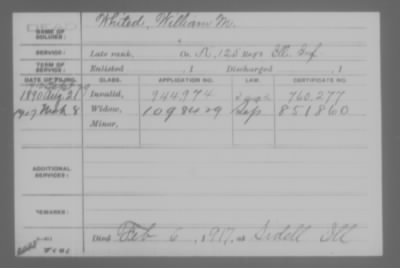 NAME OF SOLDIER: Whited, William M.
SERVICE: Late rank, Co. A, 125 Reg't Ill. Inf.
TERM OF SERVICE: Enlisted , 1 Discharged , 1
DATE OF FILING. CLASS. APPLICATION NO. LAW. CERTIFICATE NO.
1890 Aug 21 Invalid, 944,974 760,277
1917 Mch 8 Widow, 1098429 851860
Minor,
ADDITIONAL SERVICES:
REMARKS:
Died Feb 6, 1917, at Sidell Ill